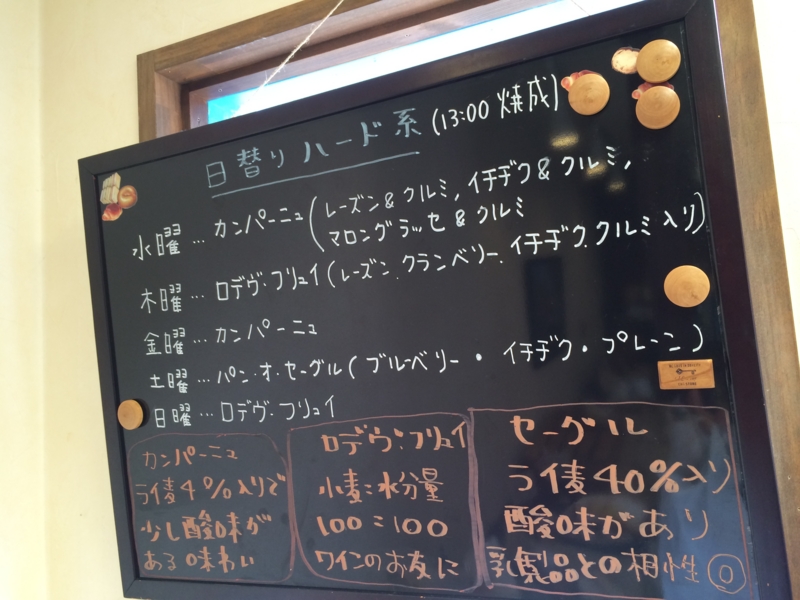 日替りハード系(13:00 焼成)
水曜…カンパーニュ(レーズン&クルミ,イチヂク&クルミ,
マロングラッセ&クルミ
木曜…ロデヴ・フリュイ(レーズン.クランベリー.イチヂク.クルミ入り)
金曜…カンパーニュ
土曜…パン・オ・セーグル(ブルーベリー・イチヂク・プレーン)
日曜…ロデヴ・フリュイ
カンパーニュ
ライ麦4%入りで
少し酸味が
ある味わい
ロデヴ・フリュイ
小麦:水分量
100:100
ワインのお友に
セーグル
ライ麦40%入り
酸味があり
乳製品との相性◎